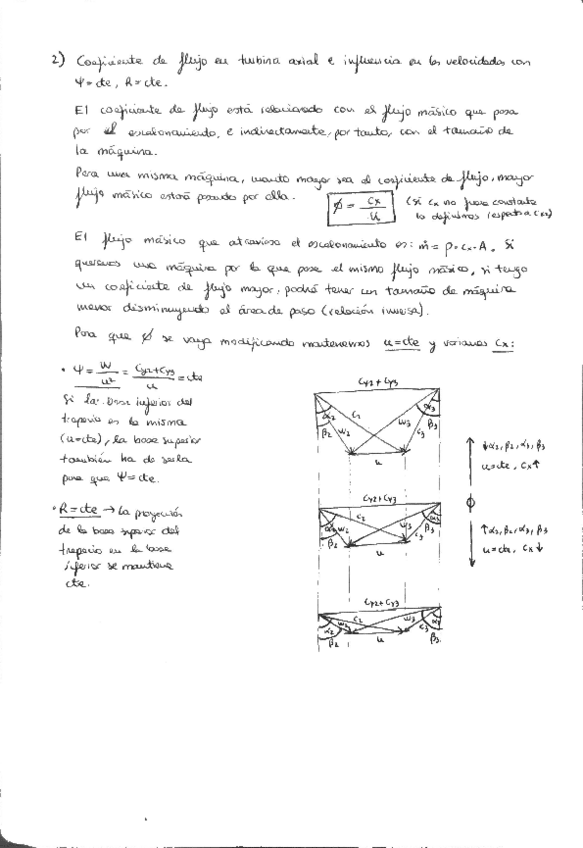 2) Coeficiente de flujo en turbina axial e influencia en las velocidades con
Ψ=cte, R=cte.
El coeficiente de flujo está relacionado con el flujo másico que pasa
por el escalonamiento, e indirectamente, por tanto, con el tamaño de
la máquina.
Para una misma máquina, cuanto mayor sea el coeficiente de flujo, mayor
flujo másico estará pasando por ella.
ϕ = cx / u
(si cx no fuese constante
lo definimos respecto a cx2)
El flujo másico que atraviesa el escalonamiento es: ṁ = ρ·cx·A. Si
queremos una máquina por la que pase el mismo flujo másico, si tengo
un coeficiente de flujo mayor, podrá tener un tamaño de máquina
menor disminuyendo el área de paso (relación inversa).
Para que ϕ se vaya modificando mantenemos u=cte y variamos cx:
• Ψ = W / u² = (Cy2+Cy3) / u = cte
Si la base inferior del
trapecio es la misma
(u=cte), la base superior
también ha de serlo
para que Ψ=cte.
• R=cte → La proyección
de la base superior del
trapecio en la base
inferior se mantiene
cte.
Cy2+Cy3
α2 β2 w2 c2 w3 c3 α3 β3
u
↓α2, β2, α3, β3
u=cte, cx↑
ϕ
Cy2+Cy3
c2
α2 w2 w3 α3
β2 c3 β3
u
↑α2, β2, α3, β3
u=cte, cx↓
Cy2+Cy3
c2 w3
α2 w2 c3 α3
β2 u β3